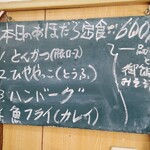 本日のおほだら定食 600
1. とんかつ(豚ロース)
2 ひややっこ(とうふ)
3. ハンバーグ
4. 魚フライ(カレイ)
一品と
御飯
みそ